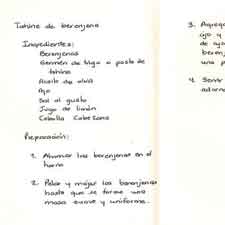 Tahine de berenjena
Ingredientes:
Berenjenas
Germen de trigo o pasta de
tahine
Aceite de oliva
Ajo
Sal al gusto
Jugo de limón
Cebolla Cabezona
Preparación:
1. Ahumar las berenjenas en el
horno
2. Pelar y majar las berenjenas
hasta que se forme una
masa suave y uniforme.
3.
ajo y
de
una
4.